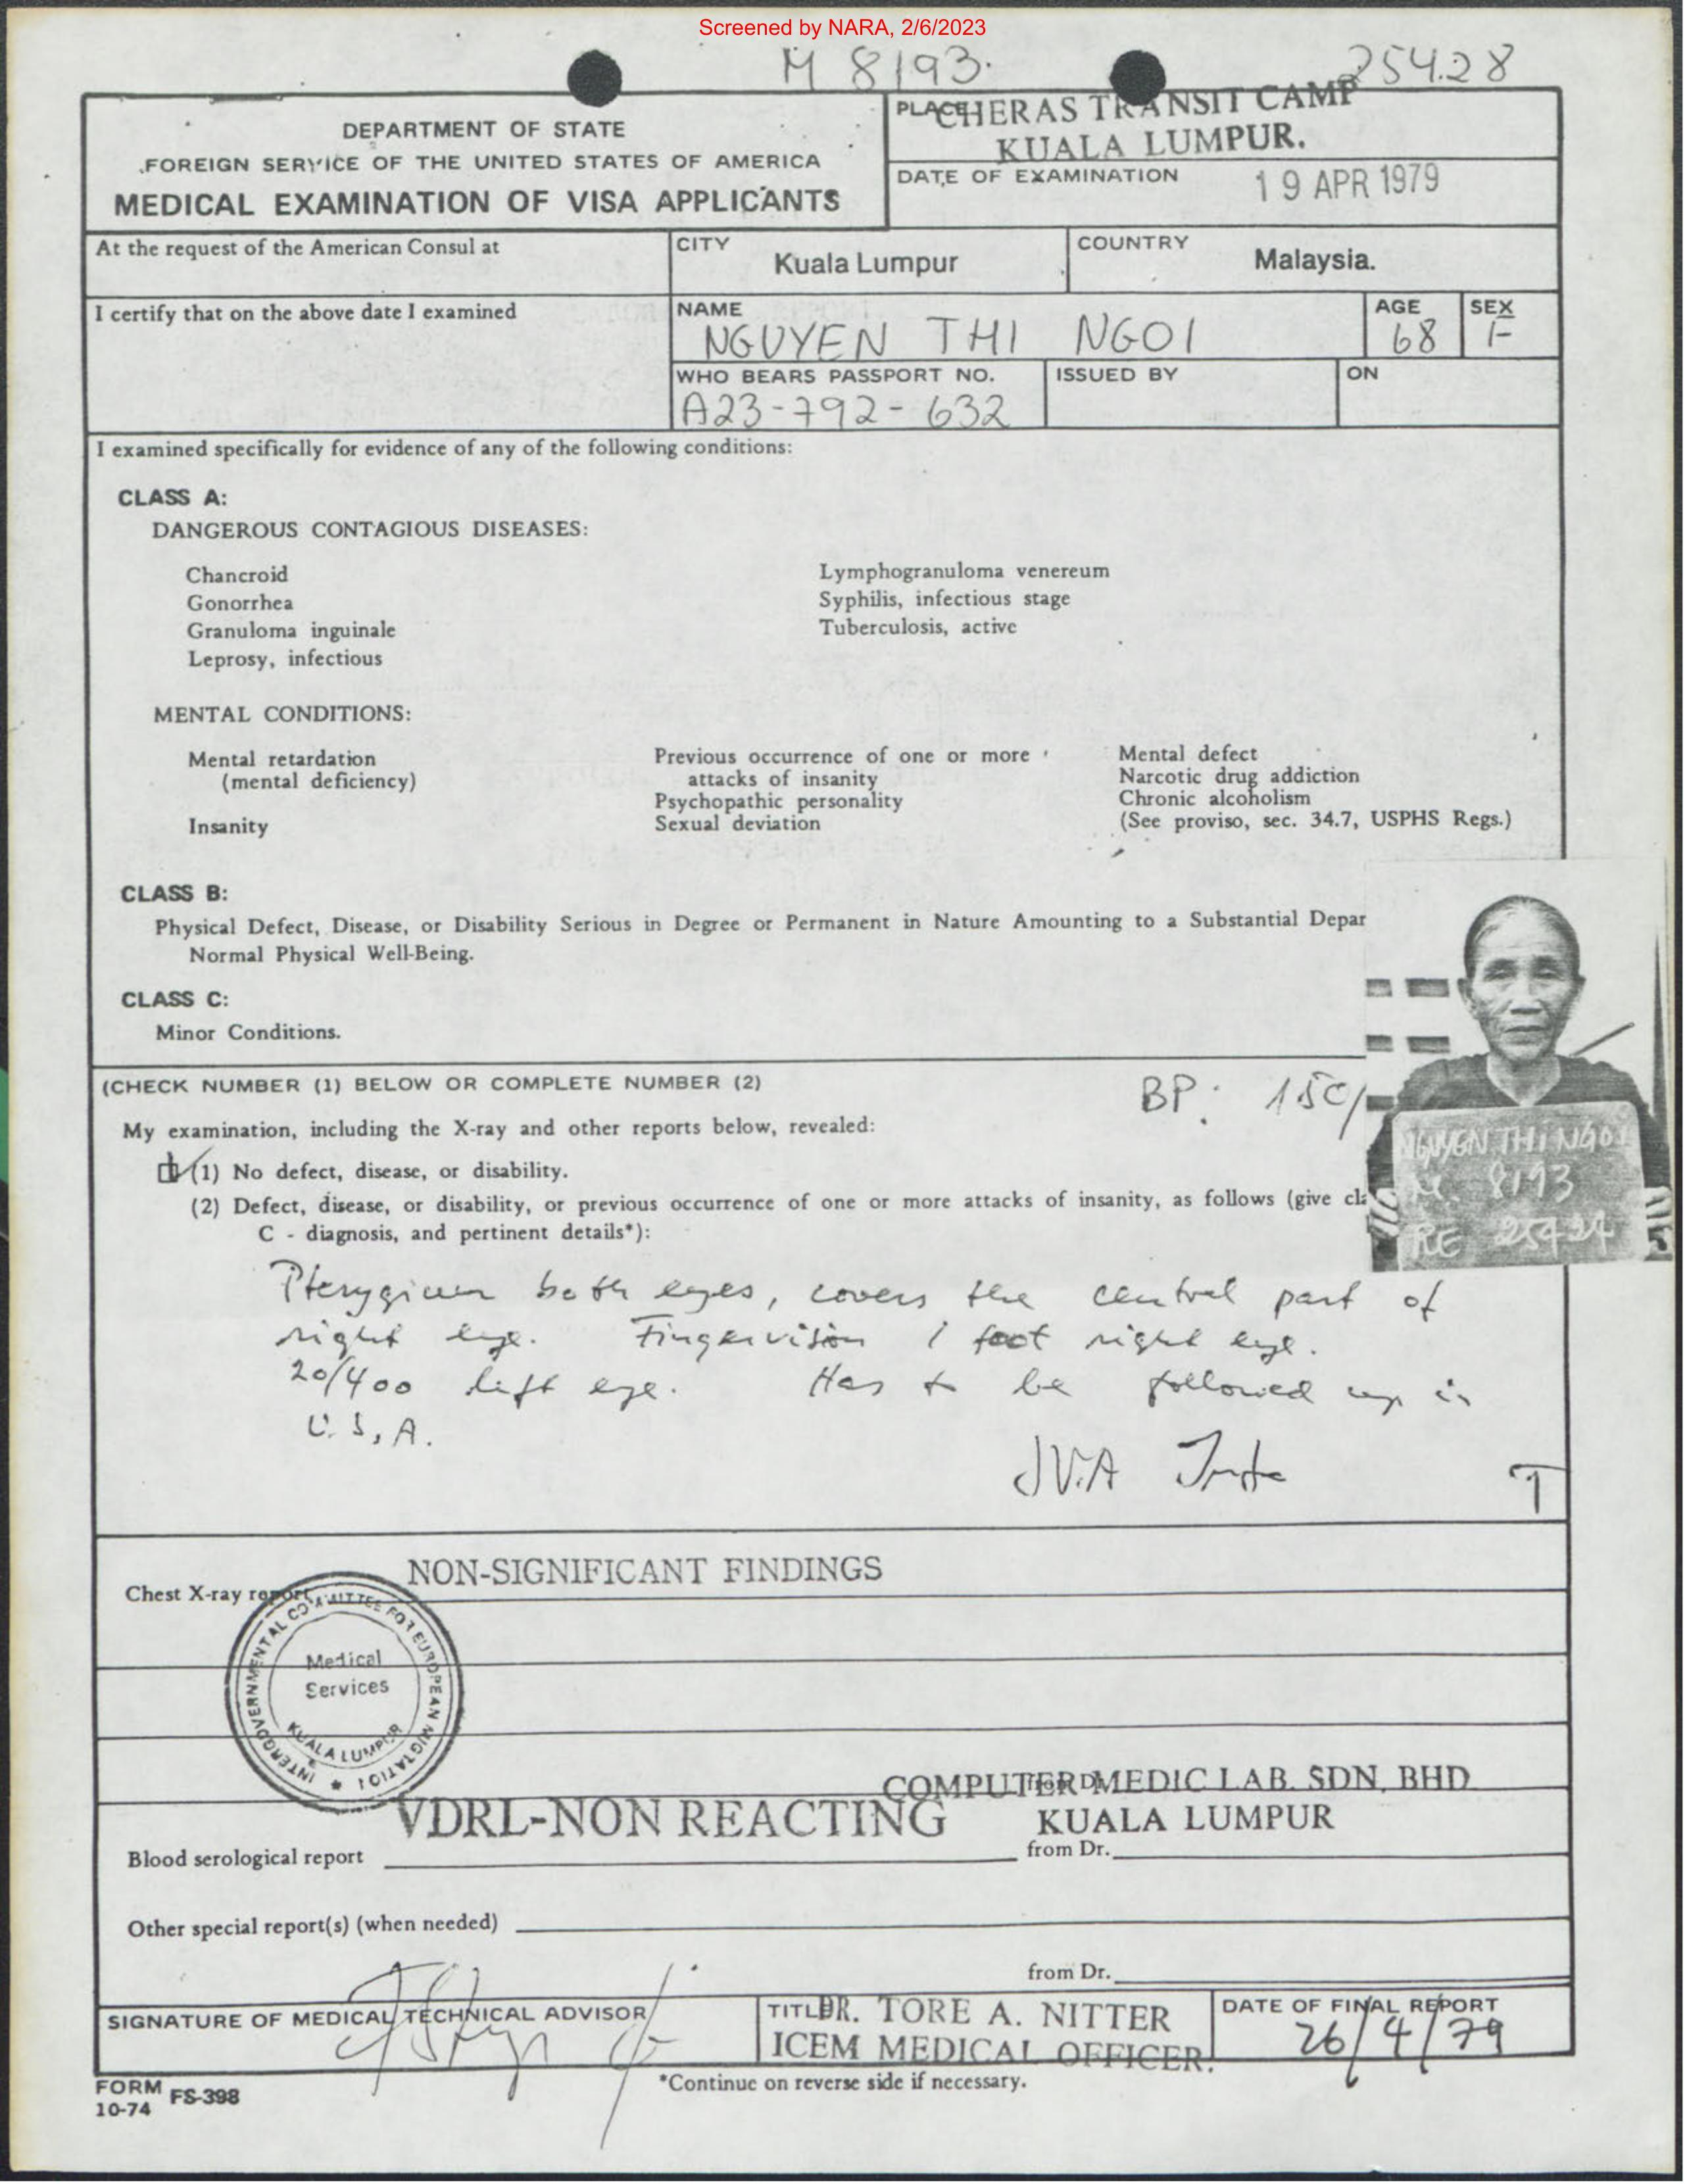 Screened by NARA, 2/6/2023
M 8193. 25428
DEPARTMENT OF STATE
FOREIGN SERVICE OF THE UNITED STATES OF AMERICA
MEDICAL EXAMINATION OF VISA APPLICANTS
PLACE CHERAS TRANSIT CAMP
KUALA LUMPUR.
DATE OF EXAMINATION 19 APR 1979
At the request of the American Consul at
CITY Kuala Lumpur
COUNTRY Malaysia.
I certify that on the above date I examined
NAME NGUYEN THI NGOI
AGE 68
SEX F
WHO BEARS PASSPORT NO. A23-792-632
ISSUED BY
ON
I examined specifically for evidence of any of the following conditions:
CLASS A:
DANGEROUS CONTAGIOUS DISEASES:
Chancroid
Gonorrhea
Granuloma inguinale
Leprosy, infectious
Lymphogranuloma venereum
Syphilis, infectious stage
Tuberculosis, active
MENTAL CONDITIONS:
Mental retardation
(mental deficiency)
Insanity
Previous occurrence of one or more
attacks of insanity
Psychopathic personality
Sexual deviation
Mental defect
Narcotic drug addiction
Chronic alcoholism
(See proviso, sec. 34.7, USPHS Regs.)
CLASS B:
Physical Defect, Disease, or Disability Serious in Degree or Permanent in Nature Amounting to a Substantial Depar
Normal Physical Well-Being.
CLASS C:
Minor Conditions.
(CHECK NUMBER (1) BELOW OR COMPLETE NUMBER (2)
BP: 150/
My examination, including the X-ray and other reports below, revealed:
(1) No defect, disease, or disability.
(2) Defect, disease, or disability, or previous occurrence of one or more attacks of insanity, as follows (give cla
C - diagnosis, and pertinent details*):
NGUYEN THI NGOI
M. 8193
RE 25424
Pterygium both eyes, covers the central part of
right eye. Fingervision 1 foot right eye.
20/400 left eye. Has to be followed up in
U.S.A.
JVA
T
Chest X-ray report NON-SIGNIFICANT FINDINGS
INTERGOVERNMENTAL COMMITTEE FOR EUROPEAN MIGRATION
Medical
Services
KUALA LUMPUR
from Dr. COMPUTER MEDIC LAB. SDN. BHD
KUALA LUMPUR
Blood serological report VDRL-NON REACTING
from Dr.
Other special report(s) (when needed)
from Dr.
SIGNATURE OF MEDICAL TECHNICAL ADVISOR
TITLE DR. TORE A. NITTER
ICEM MEDICAL OFFICER.
DATE OF FINAL REPORT
26/4/79
FORM
10-74 FS-398
*Continue on reverse side if necessary.